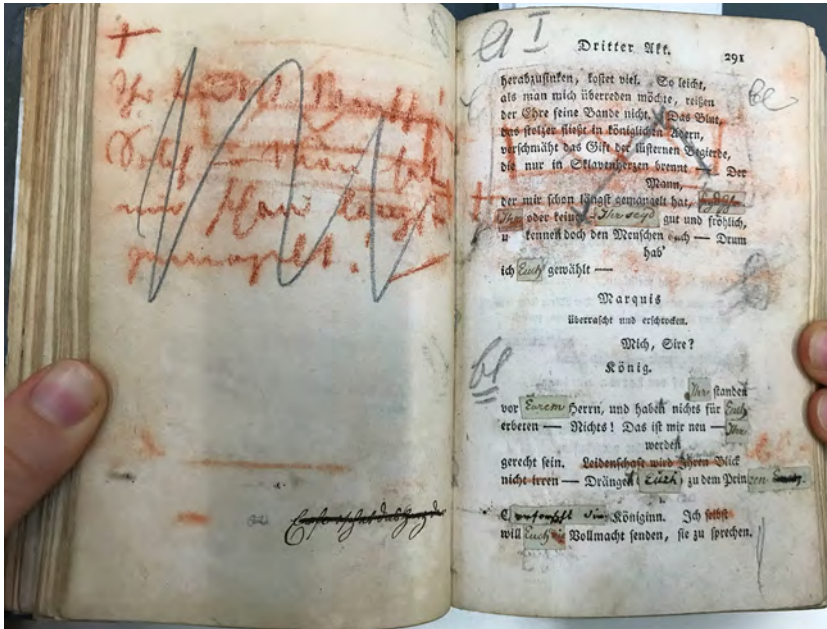 +
Ihr
nur
längst
gemangelt!
a I
Dritter Akt. 291
bl
herabzusinken, kostet viel. So leicht,
als man mich überreden möchte, reißen
der Ehre seine Bande nicht. Das Blut,
das stolzer fließt in königlichen Adern,
verschmäht das Gift der lüsternen Begierde,
die nur in Sklavenherzen brennt — Der
Mann,
der mir schon längst gemangelt hat,
Ihr oder keiner — Ihr seyd gut und fröhlich,
u kennen doch den Menschen auch — Drum
hab'
ich Euch gewählt —
Marquis
überrascht und erschrocken.
Mich, Sire?
König.
bl
Ihr standen
vor Eurem Herrn, und haben nichts für Euch
erbeten — Nichts! Das ist mir neu — Ihr
werden
gerecht sein. Leidenschaft wird Ihren Blick
nicht irren — Drängen euch zu dem Prinzen Euch.
erforscht die Königinn. Ich selbst
will Euch die Vollmacht senden, sie zu sprechen.